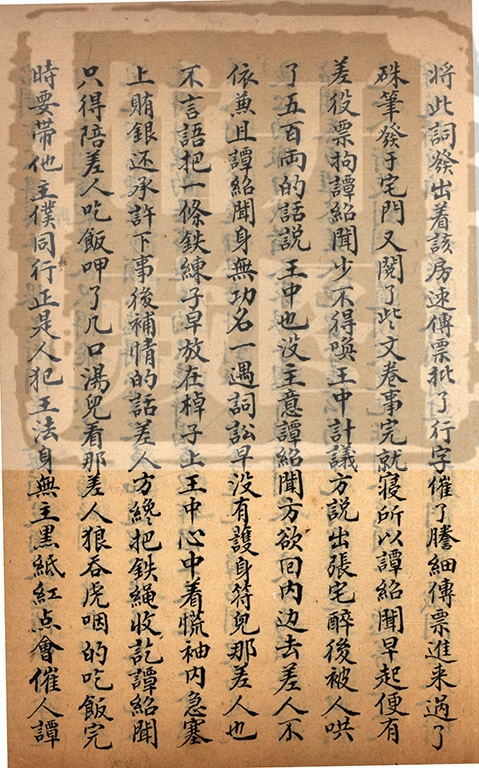 將此詞發出着該房速傳票批了行字催了謄細傳票進来過了
硃筆發于宅門又閱了些文卷事完就寢所以譚紹聞早起便有
差役票拘譚紹聞少不得喚王中計議方說出張宅醉後被人哄
了五百両的話說王中也没主意譚紹聞方欲囘内边去差人不
依兼且譚紹聞身無功名一遇詞訟早没有護身符兒那差人也
不言語把一條鉄練子早放在棹子上王中心中着慌袖内急塞
上賄銀还承許下事後補情的話差人方纔把鉄繩收訖譚紹聞
只得陪差人吃飯呷了几口湯兒看那差人狠吞虎咽的吃飯完
時要带他主僕同行正是人犯王法身無主黒紙紅点會催人譚